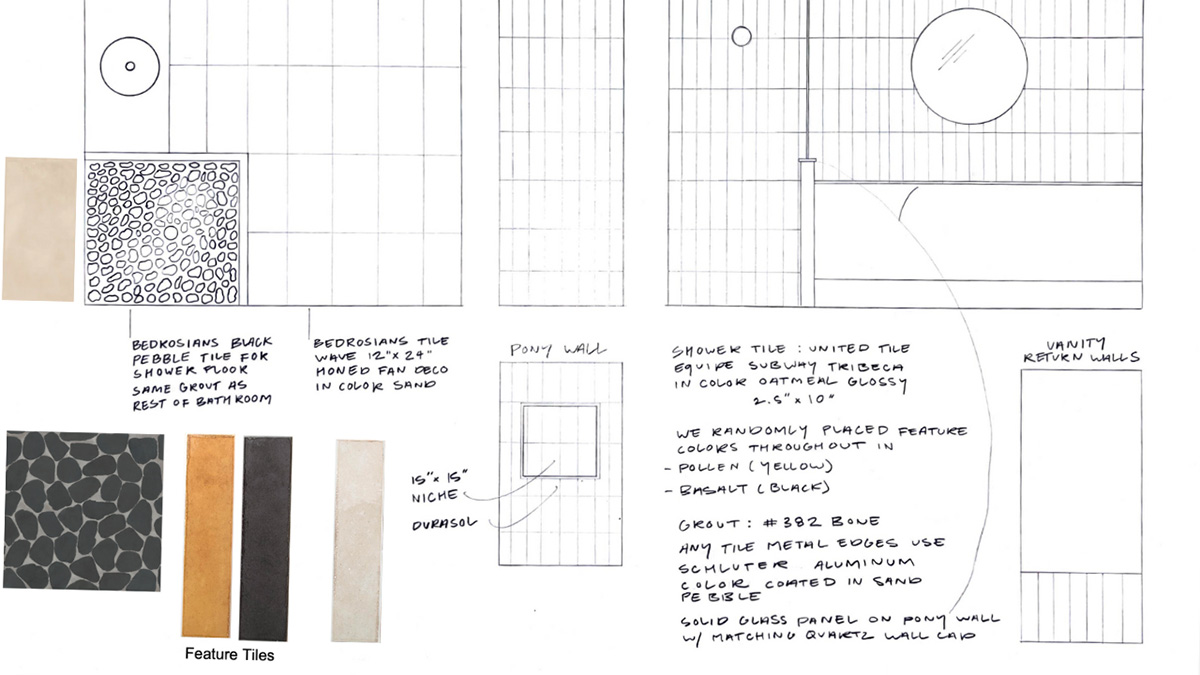 BEDROSIANS BLACK
PEBBLE TILE FOR
SHOWER FLOOR
SAME GROUT AS
REST OF BATHROOM
BEDROSIANS TILE
WAVE 12"x 24"
HONED FAN DECO
IN COLOR SAND
PONY WALL
15"x 15"
NICHE
DURASOL
SHOWER TILE : UNITED TILE
EQUIPE SUBWAY TRIBECA
IN COLOR OATMEAL GLOSSY
2.5" x 10"
WE RANDOMLY PLACED FEATURE
COLORS THROUGHOUT IN
- POLLEN (YELLOW)
- BASALT (BLACK)
GROUT : #382 BONE
ANY TILE METAL EDGES USE
SCHLUTER ALUMINUM
COLOR COATED IN SAND
PEBBLE
SOLID GLASS PANEL ON PONY WALL
W/ MATCHING QUARTZ WALL CAP
VANITY
RETURN WALLS
Feature Tiles